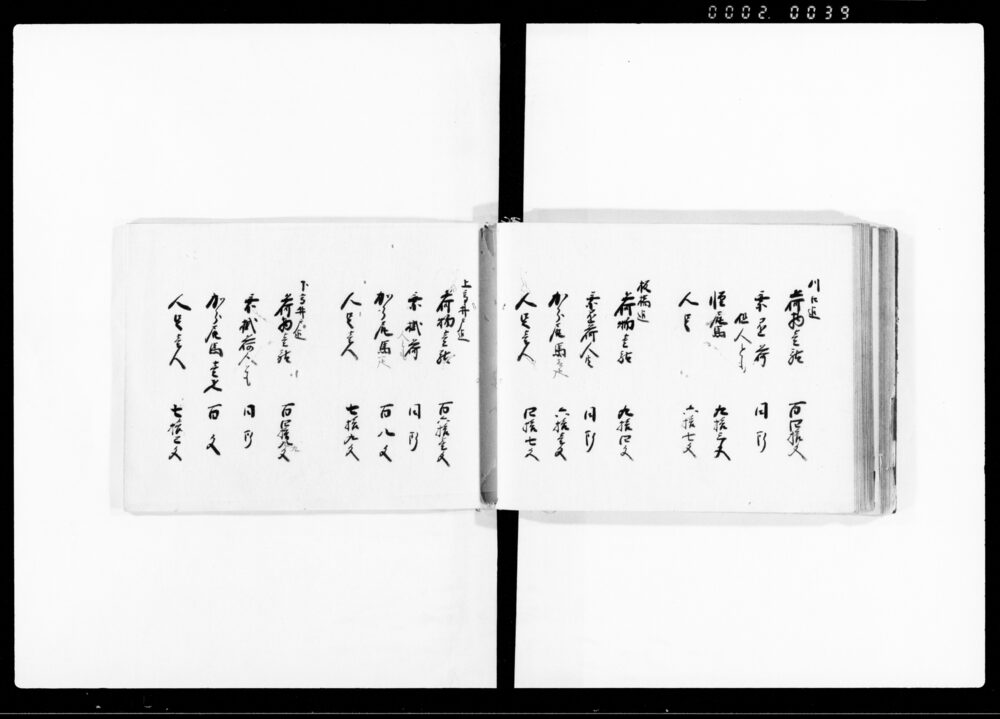 0002 0039
川口迄
荷物壱駄 百四拾八文
乗掛荷 同断
但人とも
軽尻馬 九拾三文
人足 六拾七文
板橋迄
荷物壱駄 九拾四文
乗掛荷人共 同断
から尻馬壱疋 六拾壱文
人足壱人 四拾七文
上高井戸迄
荷物壱駄 百六拾壱文
乗掛荷 同断
から尻馬壱疋 百八文
人足壱人 七拾九文
下高井戸迄
荷物壱駄 百四拾九文
乗掛荷人とも 同断
から尻馬壱疋 百文
人足壱人 七拾二文